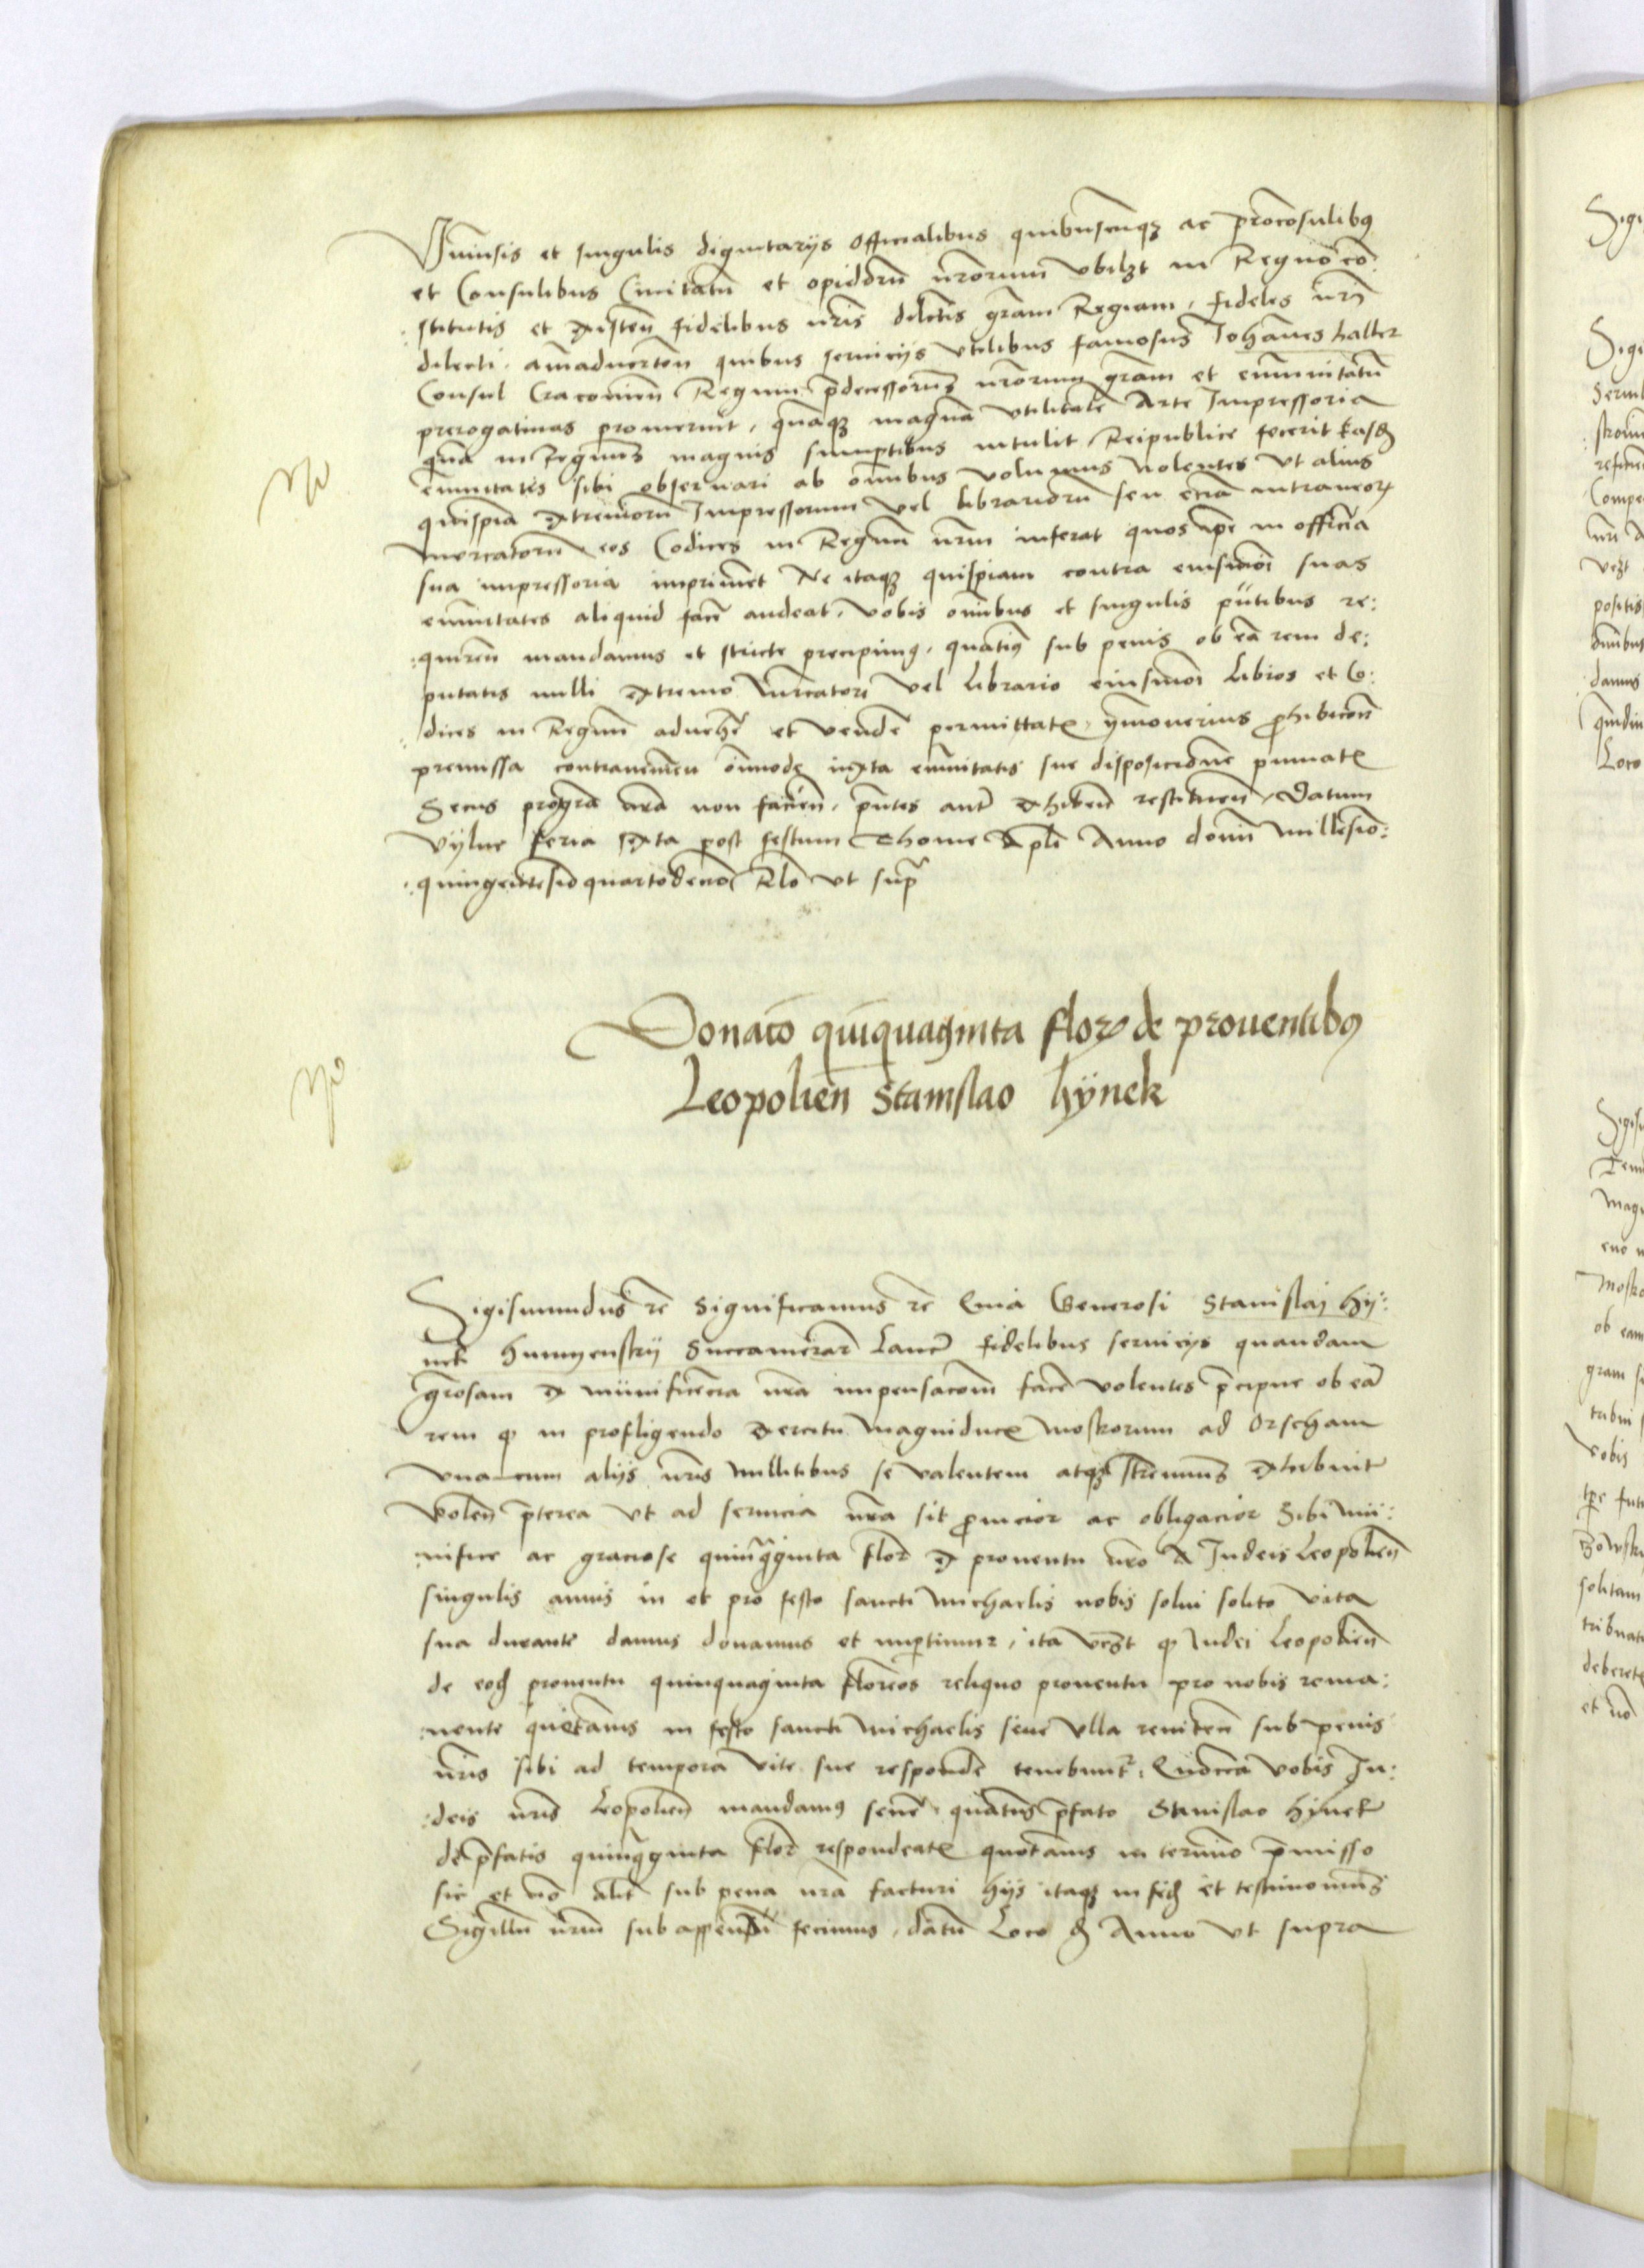 Vniuersis et singulis dignitarijs Officialibus quibuscunqz ac proconsulibus
et Consulibus Ciuitatum et opidorum nrorum vbilzt in Regno co:
:stitutis et existen fidelibus nris dilectis gram Regiam, fideles nri
dilecti. animaduerten quibus seruicijs vtilibus famosus Johanes haller
Consul Cracouien Regum predecessorum nrorum gram et emunitatum
prerogatiuas promeruit, quaqz magna vtilitate Arte Impressoria
qua in Regnum magnis sumptibus intulit Reipublice fecerit easdem
emunitates sibi obseruari ab omnibus volumus Nolentes vt alius
quispia extremorum Impressorum vel librariorum seu etia
mercatorum eos Codices in Regnum nrm inferat quos ipse in officia
sua impressoria imprimet Ne itaqz quispiam contra eiusmoi suas
emunitates aliquid facere audeat, vobis omibus et singulis pntibus re:
:quiren mandamus et stricte precipimus, quatinus sub penis ob ea rem de:
putatis nulli extremo Mercatori vel librario eiusmoi libros et Co:
:dices in Regnum aduehere et vendere permittatis, ymouerius prohibicon
premissa contrauenien omnimode iuxta emunitatis sue disposicione puniatis
Secus pro gra nra non facien, pntes autem exhiben restituen, Datum
Vylne feria sexta post festum Thome Apli Anno domini Millesimo:
:quingentesimo quartodecimo Rlo vt supra
Donatio quiquaginta flor de prouentibus
Leopolien Stanislao hÿnek
Sigismundus rc Significamus rc Quia Generosi Stanislaj Hÿ:
nek Succamerar Lanc fidelibus seruicijs quandam
grosam ex munificencia nra impensacom facere volentes precipue ob ea
rem qp in profligendo exercitu Magniducis Moskorum ad Orscham
vna cum alijs nris Militibus se valentem atqz strenuum exhibuit
Volen preterea vt ad seruicia nra sit promcior ac obligacior Sibi mu:
:nifice ac graciose quinquaginta flor ex prouentu nro A Judeis Leopolien
singulis annis in et pro festo sancti Michaelis nobis solui solito vita
sua durante damus donamus et impertimur, ita vczt qp Judei Leopolien
de eodem prouentu quinquaginta florenos reliquo prouentu pro nobis rema:
:nente quotannis in festo sancti Michaelis sine vlla reniten sub penis
nris sibi ad tempora vite sue respondere tenebuntur, Quocca vobis Ju:
:deis nris Leopolien mandamus quatinus prefato Stanislao hÿnek
de prefatis quinquaginta flor respondeatis quotannis in termino premisso
sic et no alr sub pena nra facturi hijs itaqz in fidem et testimonium
Sigillum nrm sub appendi fecimus, datum Loco die Anno vt supra